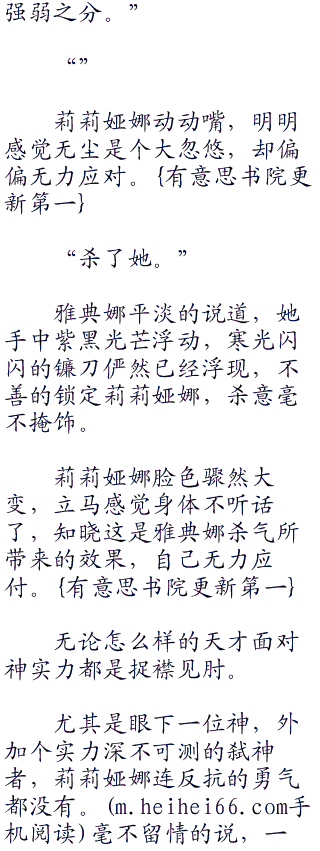 强弱之分。”
“”
莉莉娅娜动动嘴，明明
感觉无尘是个大忽悠，却偏
偏无力应对。{有意思书院更
新第一}
“杀了她。”
雅典娜平淡的说道，她
手中紫黑光芒浮动，寒光闪
闪的镰刀俨然已经浮现，不
善的锁定莉莉娅娜，杀意毫
不掩饰。
莉莉娅娜脸色骤然大
变，立马感觉身体不听话
了，知晓这是雅典娜杀气所
带来的效果，自己无力应
付。{有意思书院更新第一}
无论怎么样的天才面对
神实力都是捉襟见肘。
尤其是眼下一位神，外
加个实力深不可测的弑神
者，莉莉娅娜连反抗的勇气
都没有。(m.heihei66.com手
机阅读)毫不留情的说，一